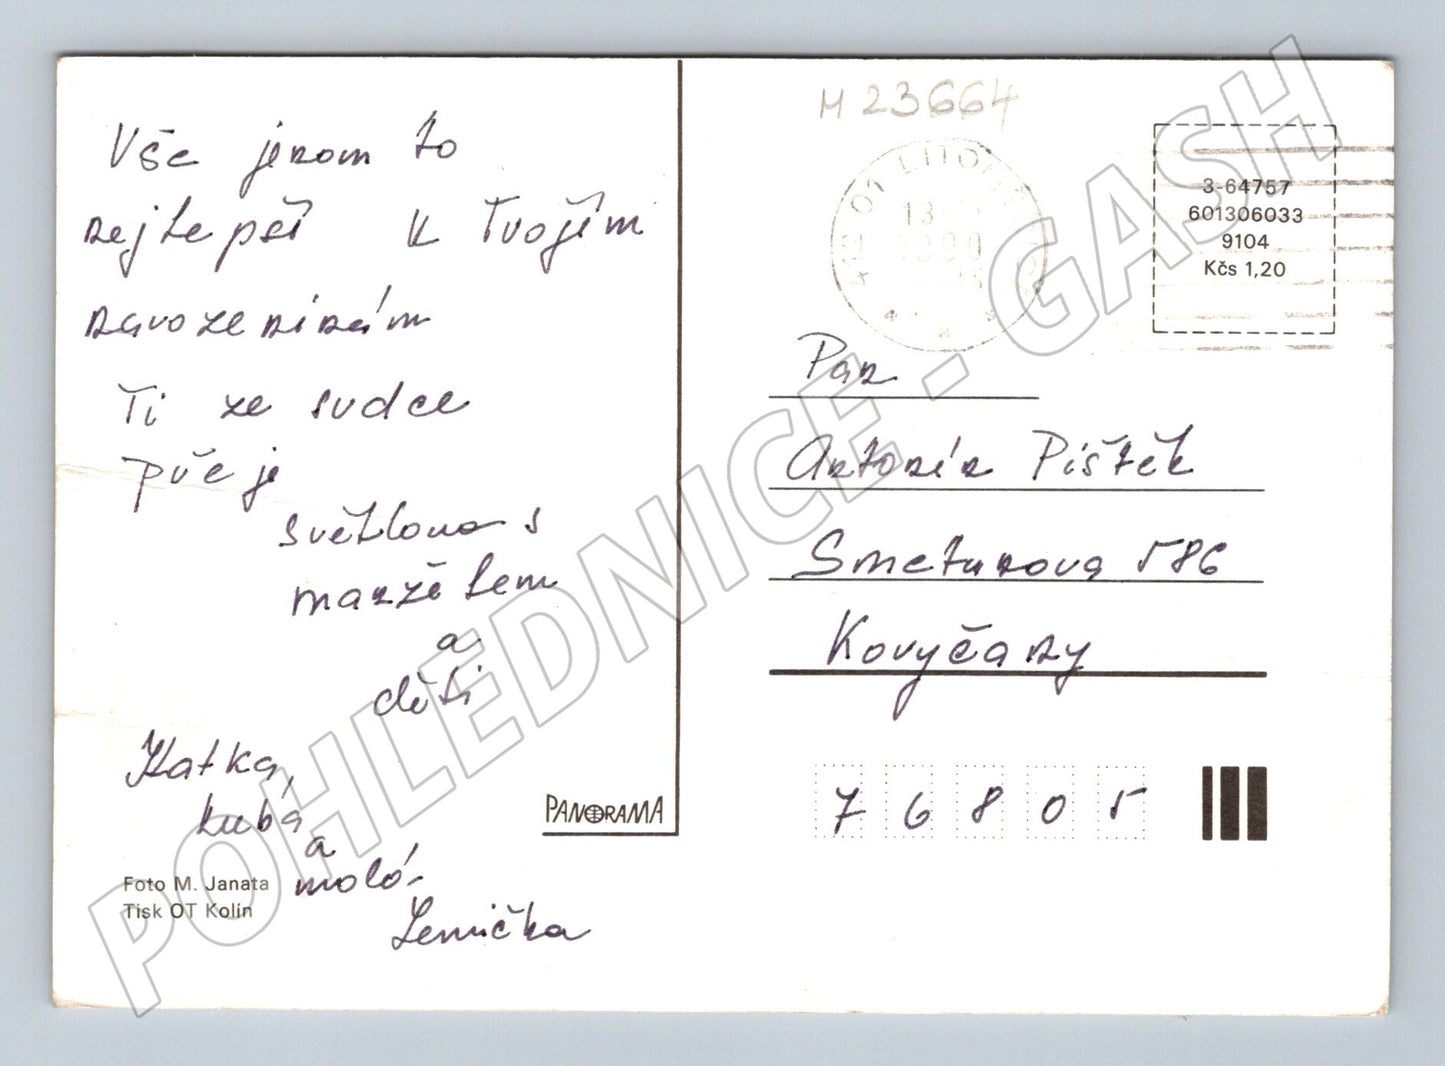 Vše jenom to
nejlepší k Tvojím
narozeninám
Ti ze srdce
přeje
světlana s
manželem
a
děti
Katka,
kuba
a
malá-
Lenička
PANORAMA
Foto M. Janata
Tisk OT Kolín
M 23664
412 01 LITOMĚŘICE
3-64757
601306033
9104
Kčs 1,20
Pan
Antonín Píštěk
Smetanova 586
Koryčany
76805
POHLEDNICE - GASH